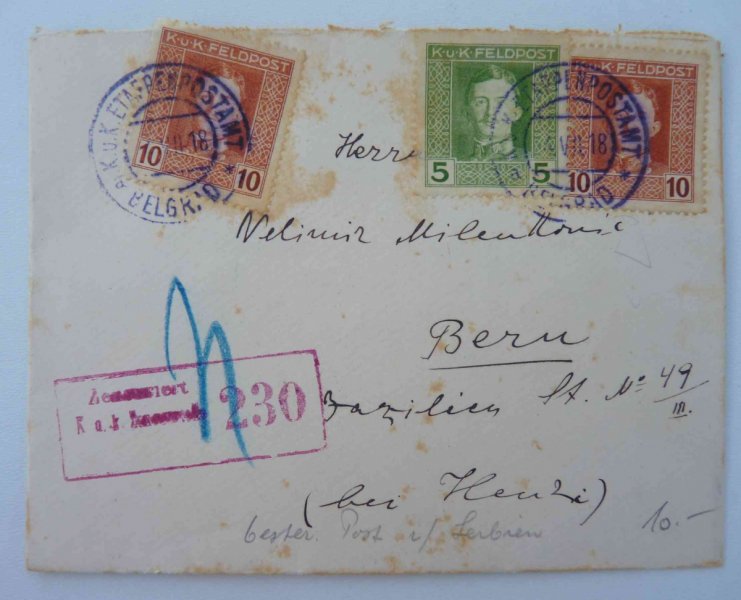 K.u.K. FELDPOST
10 10
K.u.K. FELDPOST
5 5
K.u.K. FELDPOST
10 10
K.u.K. ETAPPENPOSTAMT
II.18
a BELGRAD *
ETAPPENPOSTAMT
VII.18
BELGRAD *
Herrn
Velimir Milenković
Bern
Brazilien St. No 49/III.
(bei Henzi)
Zensuriert
K. u. k.
230
öster. Post i/ Serbien
10.-